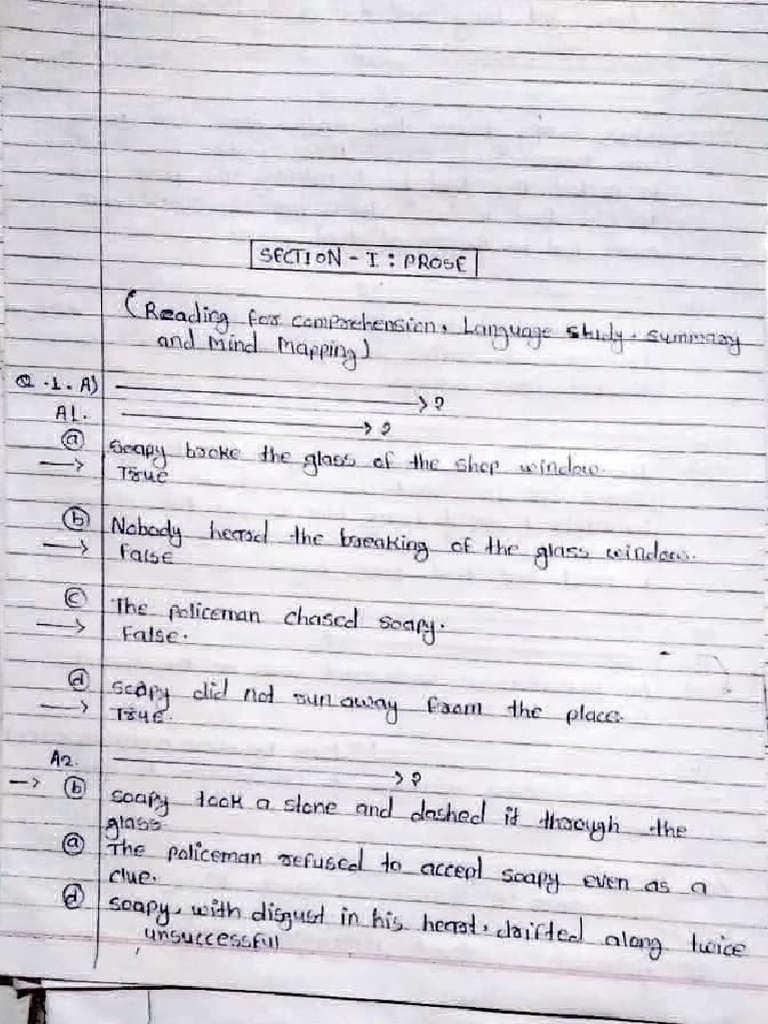 SECTION - I : PROSE
(Reading for comprehension, Language study, summary
and Mind Mapping)
Q -1. A) ?
A1. ?
(a) Soapy broke the glass of the shop window.
→ True
(b) Nobody heard the breaking of the glass window.
→ False
(c) The policeman chased soapy.
→ False.
(d) Soapy did not run away from the place.
→ True.
A2. ?
→ (b) Soapy took a stone and dashed it through the
glass
(a) The policeman refused to accept soapy even as a
clue.
(d) Soapy, with disgust in his heart, drifted along twice
unsuccessful